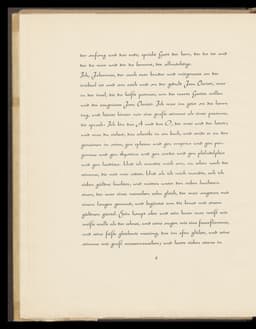 der anfang und das ende, spricht Gott der herr, der da ist und
der da war und der da kommt, der allmächtige.
Ich, Johannes, der auch euer bruder und mitgenoss an der
trübsal ist und am reich und an der geduld Jesu Christi, war
in der insel, die da heißt patmos, um des worts Gottes willen
und des zeugnisses Jesu Christi. Ich war im geist an des herrn
tag, und hörte hinter mir eine große stimme als einer posaune,
die sprach: Ich bin das A und das O, der erste und der letzte;
und was du siehest, das schreibe in ein buch, und sende es zu den
gemeinen in asien, gen ephesus und gen smyrna und gen per-
gamus und gen thyatira und gen sardes und gen philadelphia
und gen laodicea. Und ich wandte mich um, zu sehen nach der
stimme, die mit mir redete. Und als ich mich wandte, sah ich
sieben güldene leuchter, und mitten unter den sieben leuchtern
einen, der war eines menschen sohn gleich, der war angetan mit
einem langen gewande, und begürtet um die brust mit einem
güldenen gürtel. Sein haupt aber und sein haar war weiß wie
weiße wolle als der schnee, und seine augen wie eine feuerflamme,
und seine füße gleichwie messing, das im ofen glühet, und seine
stimme wie groß wasserrauschen; und hatte sieben sterne in